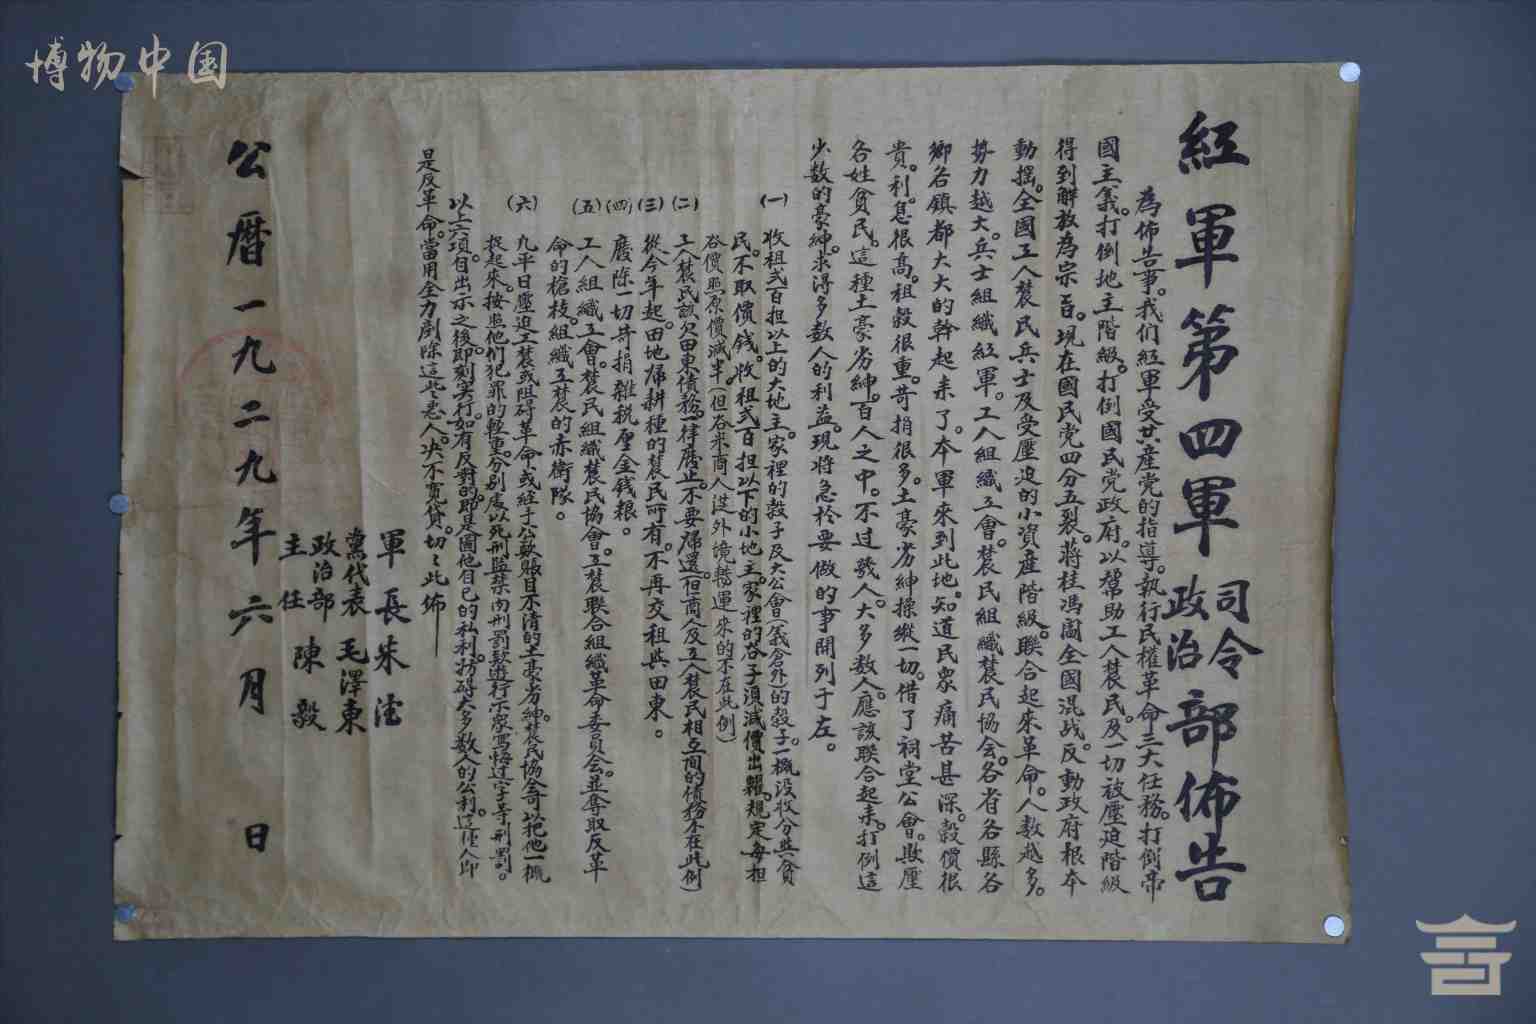 博物中国
紅軍第四軍司令政治部佈告
為佈告事。我们紅軍受共產党的指導。執行民權革命三大任務。打倒帝
國主義。打倒地主階級。打倒國民党政府。以幫助工人農民。及一切被壓迫階級
得到解放為宗旨。現在國民党四分五裂。蔣桂馮閻全國混战。反動政府根本
動摇。全國工人農民兵士及受壓迫的小資產階級。聯合起來革命。人数越多。
势力越大。兵士組織紅軍。工人組織工會。農民組織農民協会。各省各縣各
鄉各鎮都大大的幹起来了。本軍來到此地。知道民众痛苦甚深。穀價很
貴。利息很高。租穀很重。苛捐很多。土豪劣紳操縱一切。借了祠堂公會。欺壓
各姓貧民。這種土豪劣紳。百人之中。不过幾人。大多数人。應該联合起来。打倒這
少数的豪紳。求得多数人的利益。現将急於要做的事開列于左。
(一) 收租弍百担以上的大地主。家裡的穀子及大公會(義倉外)的穀子。一概沒收分與貧
民。不取價钱。收租弍百担以下的小地主。家裡的谷子須減價出糶。規定每担
谷價照原價減半。(但谷米商人從外境轉運来的不在此例)
(二) 工人農民該欠田東債務。一律廢止。不要歸還。(但商人及工人農民相互間的債務不在此例)
(三) 從今年起。田地歸耕種的農民所有。不再交租與田東。
(四) 廢除一切苛捐雜税厘金钱粮。
(五) 工人組織工會。農民組織農民協會。工農联合組織革命委員会。並奪取反革
命的槍枝。組織工農的赤衛隊。
(六) 凡平日壓迫工農或阻碍革命或经手公款賬目不清的土豪劣紳。農民協会可以把他一概
捉起來。按照他們犯罪的輕重。分別處以死刑監禁肉刑罰款遊行示众寫悔过字等刑罰。
以上六項。自出示之後。即刻实行。如有反對的。即是圖他自己的私利。妨碍大多数人的公利。這種人即
是反革命。當用全力剷除這些惡人。决不寬貸。切切此佈
軍長 朱德
黨代表 毛澤東
政治部主任 陳毅
公曆一九二九年六月 日